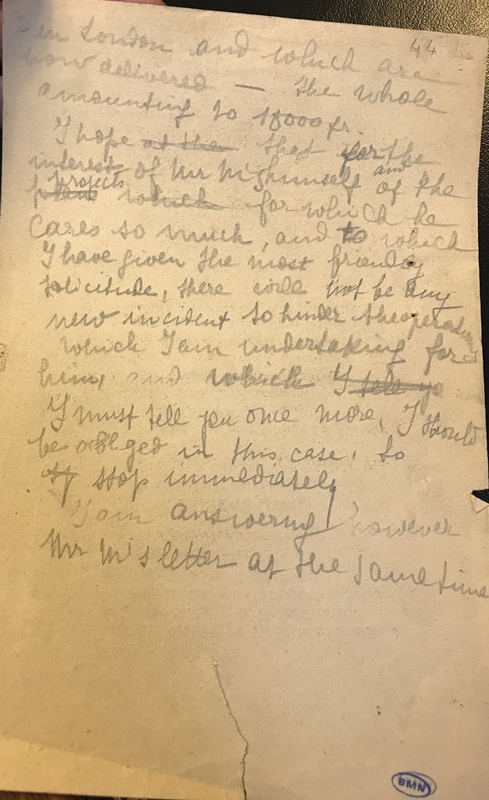 44
- in London and which are
now delivered — the whole
amounting to 18000 fr.
I hope at the that for the
interest of Mr himself and of the
projects which for which he
cares so much, and to which
I have given the most friendly
solicitude, there will not be any
new incident to hinder the operations
which I am undertaking for
him, and which I tell yo
I must tell you once more, I should
be obliged in this case, to
stop immediately
I am answering however
Mr M's letter at the same time
BMN